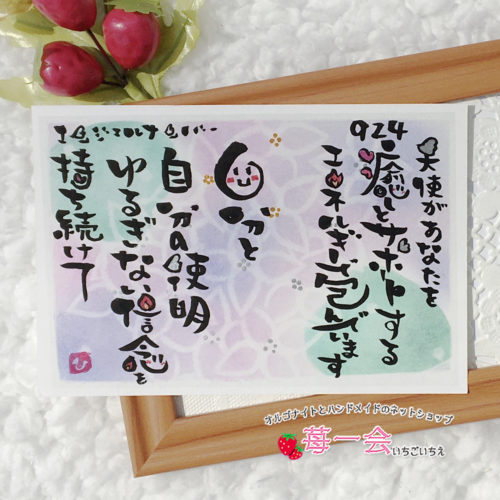 エンジェルナンバー
924
天使があなたを
癒しとサポートする
エネルギーで包んでいます
自分と
自分の使明
ゆるぎない信念を
持ち続けて
オルゴナイトとハンドメイドのネットショップ
苺一会 いちごいちえ